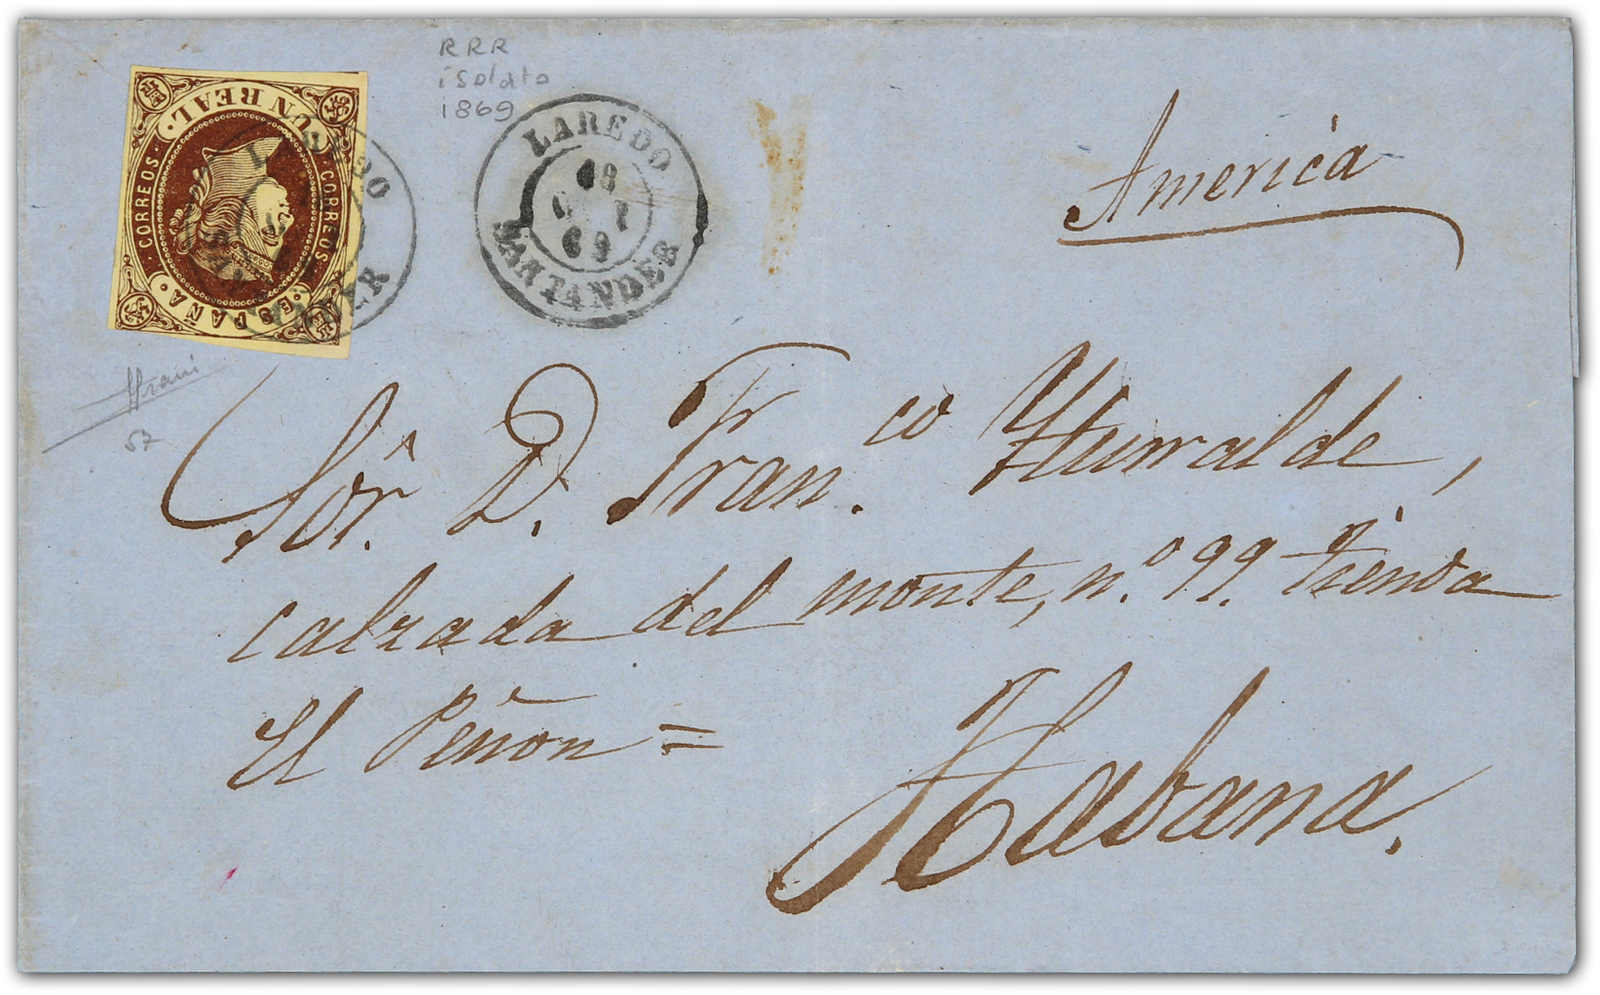 RRR
isolato
1869
UN REAL
CORREOS
CORREOS
ESPAÑA
LAREDO
SANTANDER
69
America
Sor. D. Fran.co Yturralde,
calzada del monte, n.o 99. tienda
El Peñon =
Habana.
57